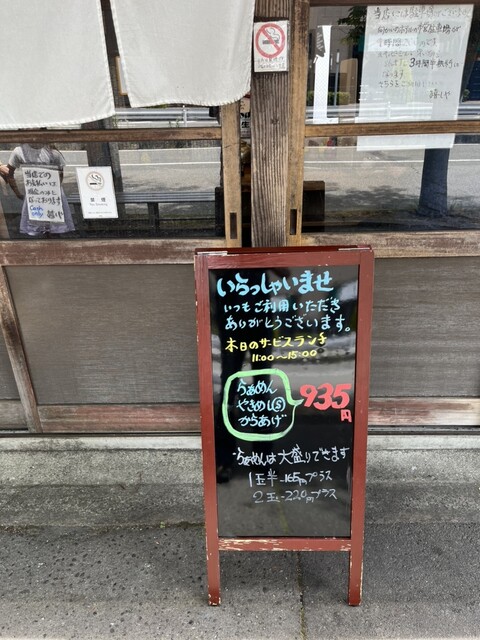 いらっしゃいませ
いつもご利用いただき
ありがとうございます。
本日のサービスランチ
11:00〜15:00
らぁめん
やきめしⓈ
からあげ
935円
らぁめんは大盛りできます
1玉半-165円プラス
2玉-220円プラス
当店での
お支払いは
現金のみと
なっております
Cash only
禁煙
No Smoking
3時間半無料